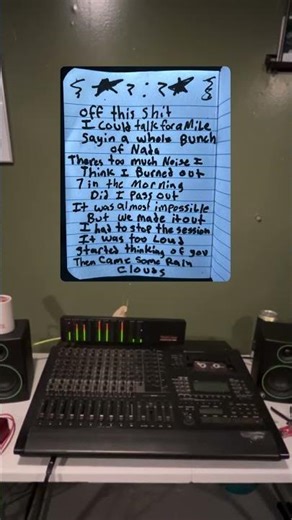 off this shit
I Could talk for a Mile
Sayin a whole Bunch
of Nada
Theres too much Noise I
Think I Burned out
7 in the Morning
Did I Pass out
It was almost impossible
But we made it out
I had to stop the session
It was too Loud
started thinking of you
Then Came Some Rain
Clouds